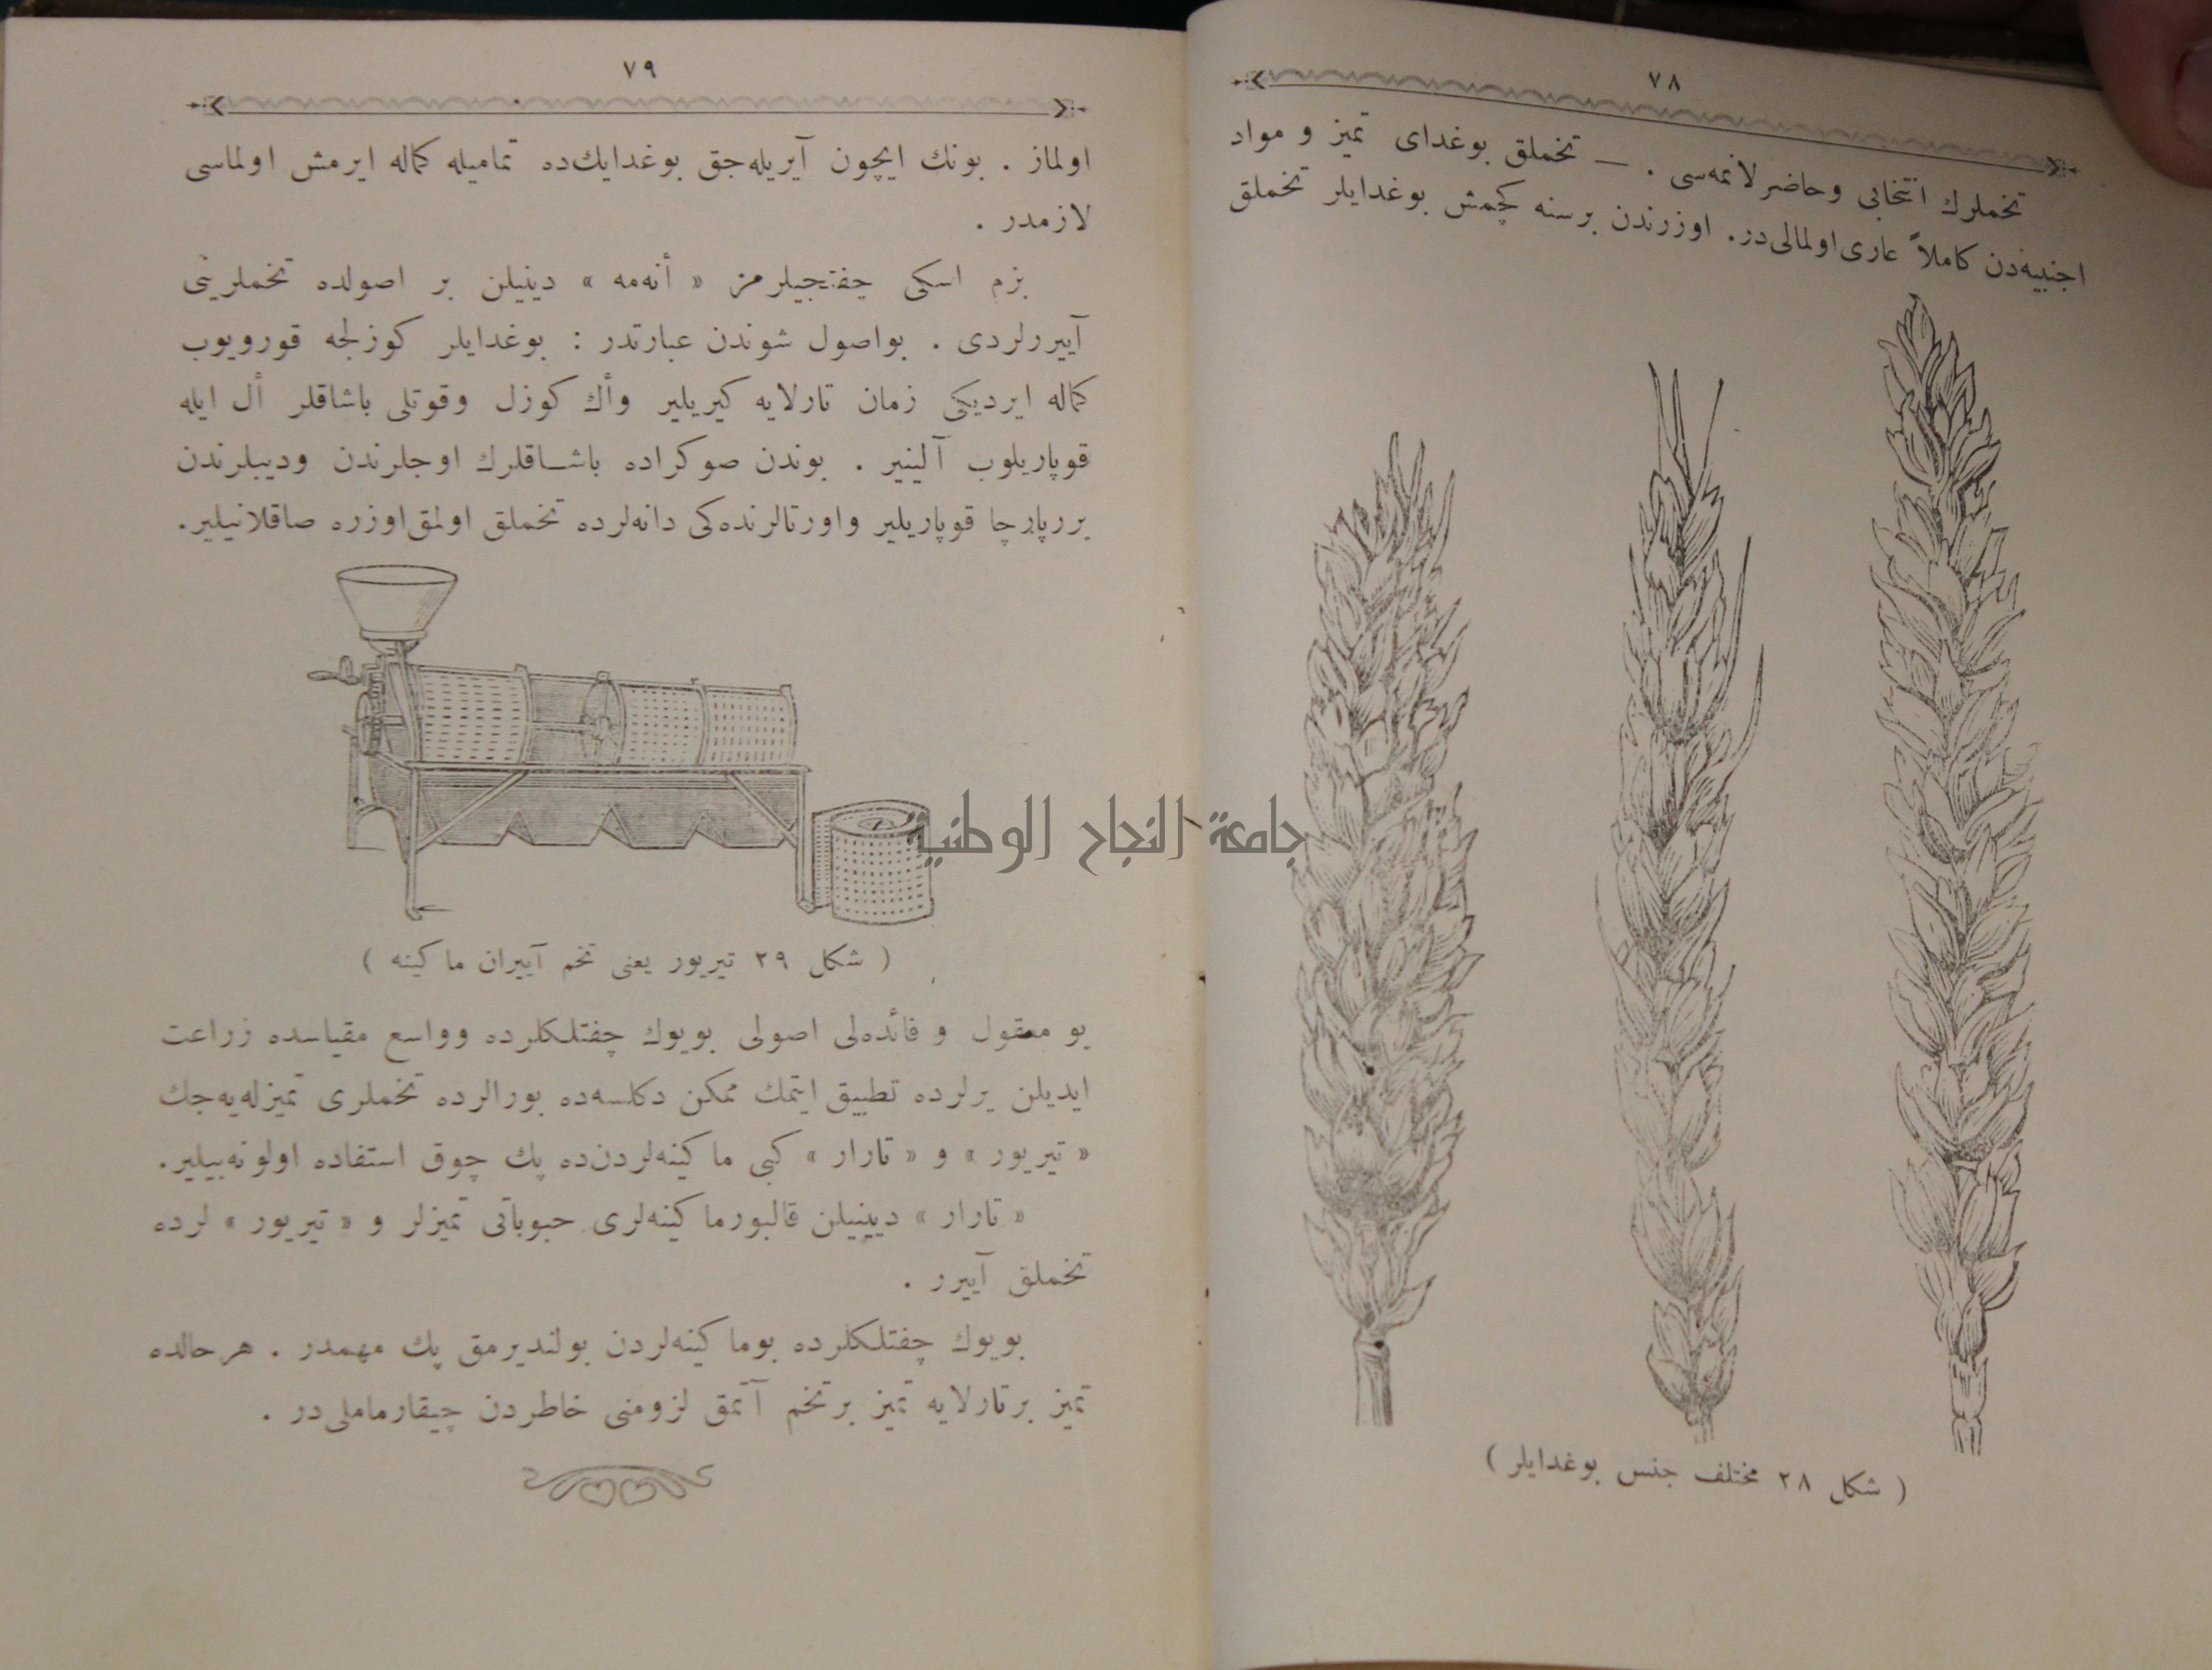 ٧٨
تخملرك انتخابی وحاضرلانمه‌سی . — تخملق بوغدای تمیز و مواد
اجنبیه‌دن كاملاً عاری اولمالی‌در. اوزرندن برسنه كچمش بوغدایلر تخملق
( شكل ٢٨ مختلف جنس بوغدایلر )
٧٩
اولماز . بونك ایچون آیریله‌جق بوغدایك‌ده تمامیله كماله ایرمش اولماسی
لازمدر .
بزم اسكی چفتجیلرمز « أنه‌مه » دینیلن بر اصولده تخملرینی
آییررلردی . بواصول شوندن عبارتدر : بوغدایلر كوزلجه قورویوب
كماله ایردیكی زمان تارلایه كیریلیر وأك كوزل وقوتلی باشاقلر أل ایله
قوپاریلوب آلینیر . بوندن صوكراده باشاقلرك اوجلرندن ودیبلرندن
بررپارچا قوپاریلیر واورتالرنده‌كی دانه‌لرده تخملق اولمق اوزره صاقلانیلیر.
( شكل ٢٩ تیریور یعنی تخم آییران ماكینه )
بو معقول و فائده‌لی اصولی بویوك چفتلكلرده وواسع مقیاسده زراعت
ایدیلن یرلرده تطبیق ایتمك ممكن دكلسه‌ده بورالرده تخملری تمیزله‌یه‌جك
« تیریور » و « تارار » كبی ماكینه‌لردن‌ده پك چوق استفاده اولونه‌بیلیر.
« تارار » دیینیلن قالبورماكینه‌لری حبوباتی تمیزلر و « تیریور » لرده
تخملق آییرر .
بویوك چفتلكلرده بوماكینه‌لردن بولندیرمق پك مهمدر . هرحالده
تمیز برتارلایه تمیز برتخم آتمق لزومنی خاطردن چیقارماملی‌در .
جامعة النجاح الوطنية